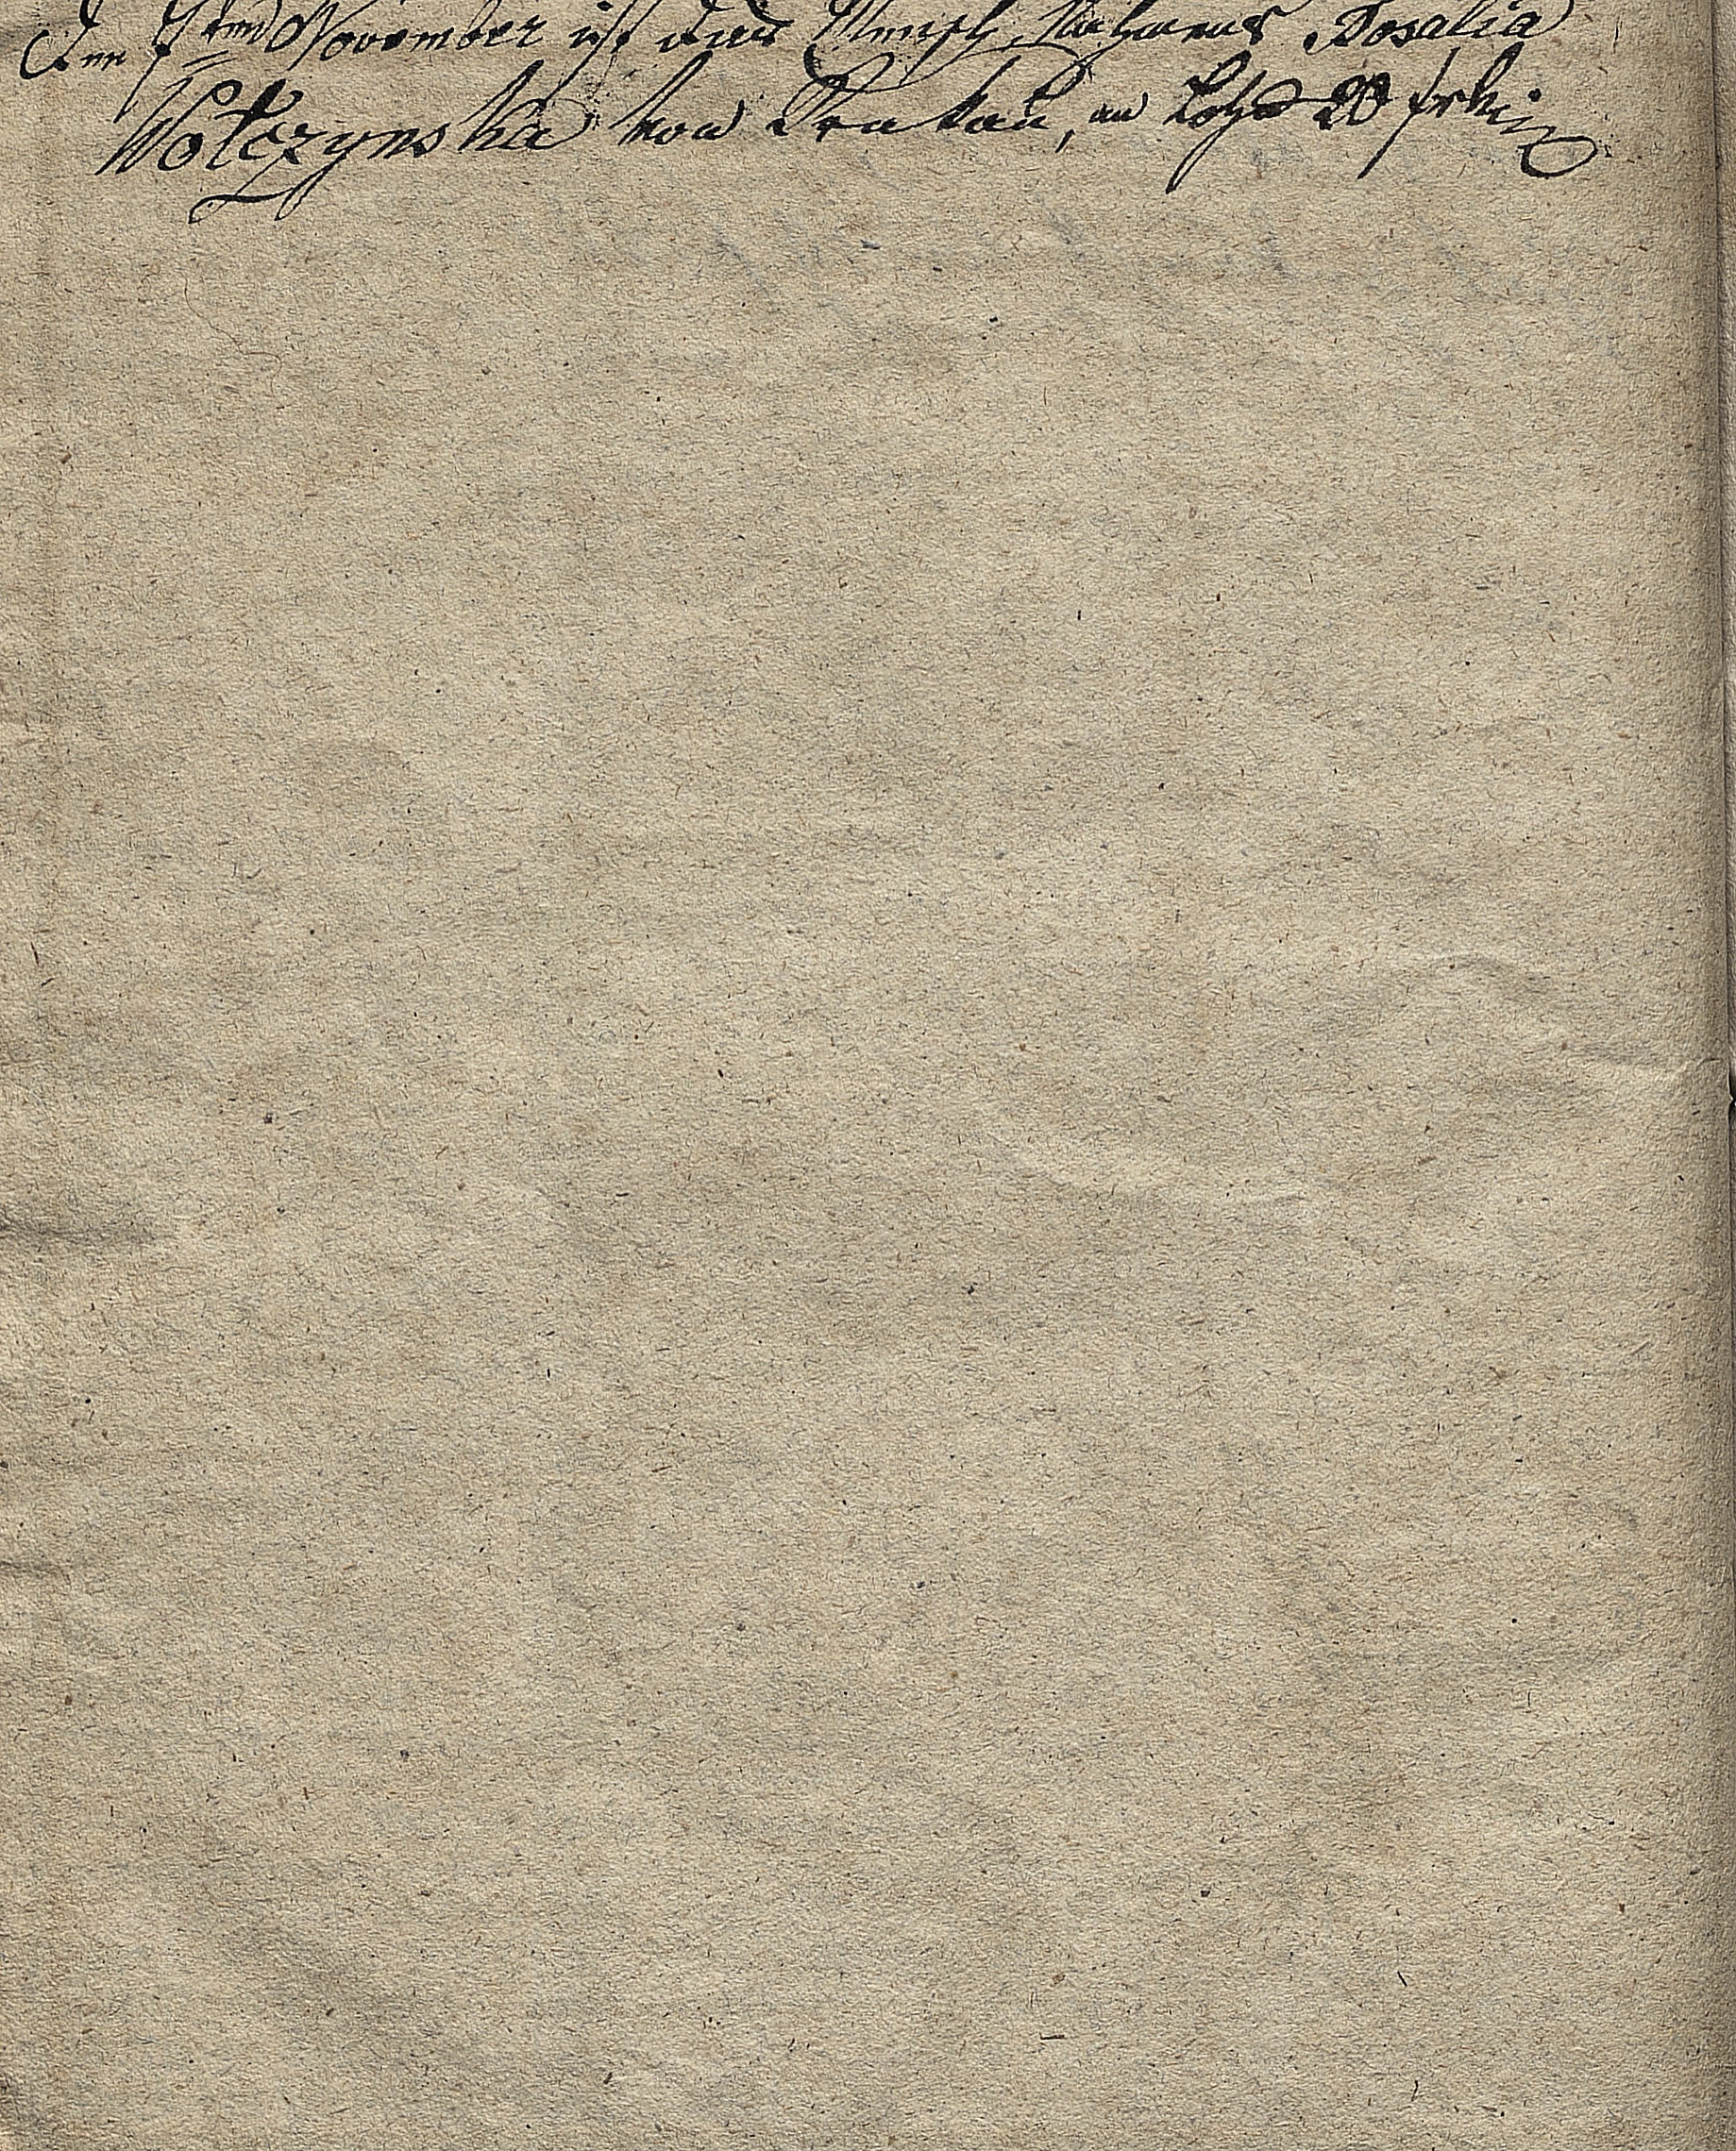 Den 7ten November ist das Mensch, Nahmens Rosalia
Wolczynska von Krakau, an Lohn 20 frhn